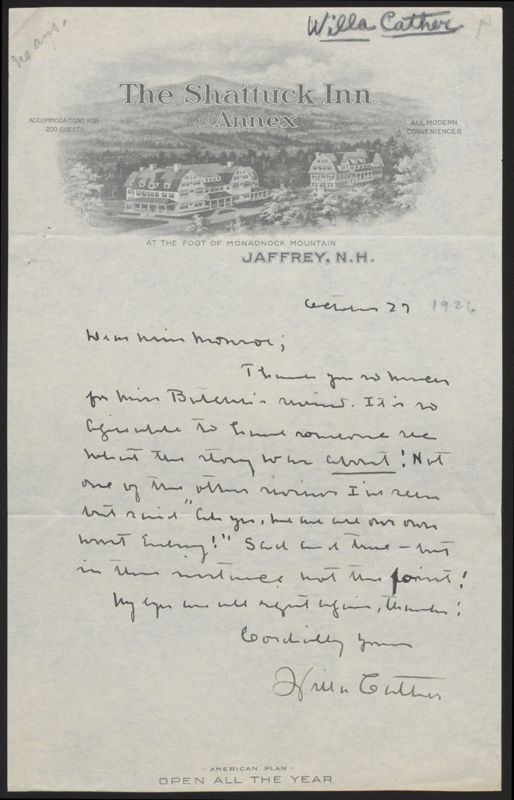 no ans.
Willa Cather
The Shattuck Inn
and Annex
ACCOMMODATIONS FOR
200 GUESTS
ALL MODERN
CONVENIENCES
AT THE FOOT OF MONADNOCK MOUNTAIN
JAFFREY, N.H.
October 27 1926
Dear Miss Monroe;
Thank you so much
for Miss review. It is so
agreeable to have someone see
what the story was about! Not
one of the other reviews I've seen
but said "Ah yes, we are all our own
worst enemy!" Sad and true - but
in this instance, not the point!
My eyes are all right again, thanks!
Cordially yours
Willa Cather
- AMERICAN PLAN -
OPEN ALL THE YEAR